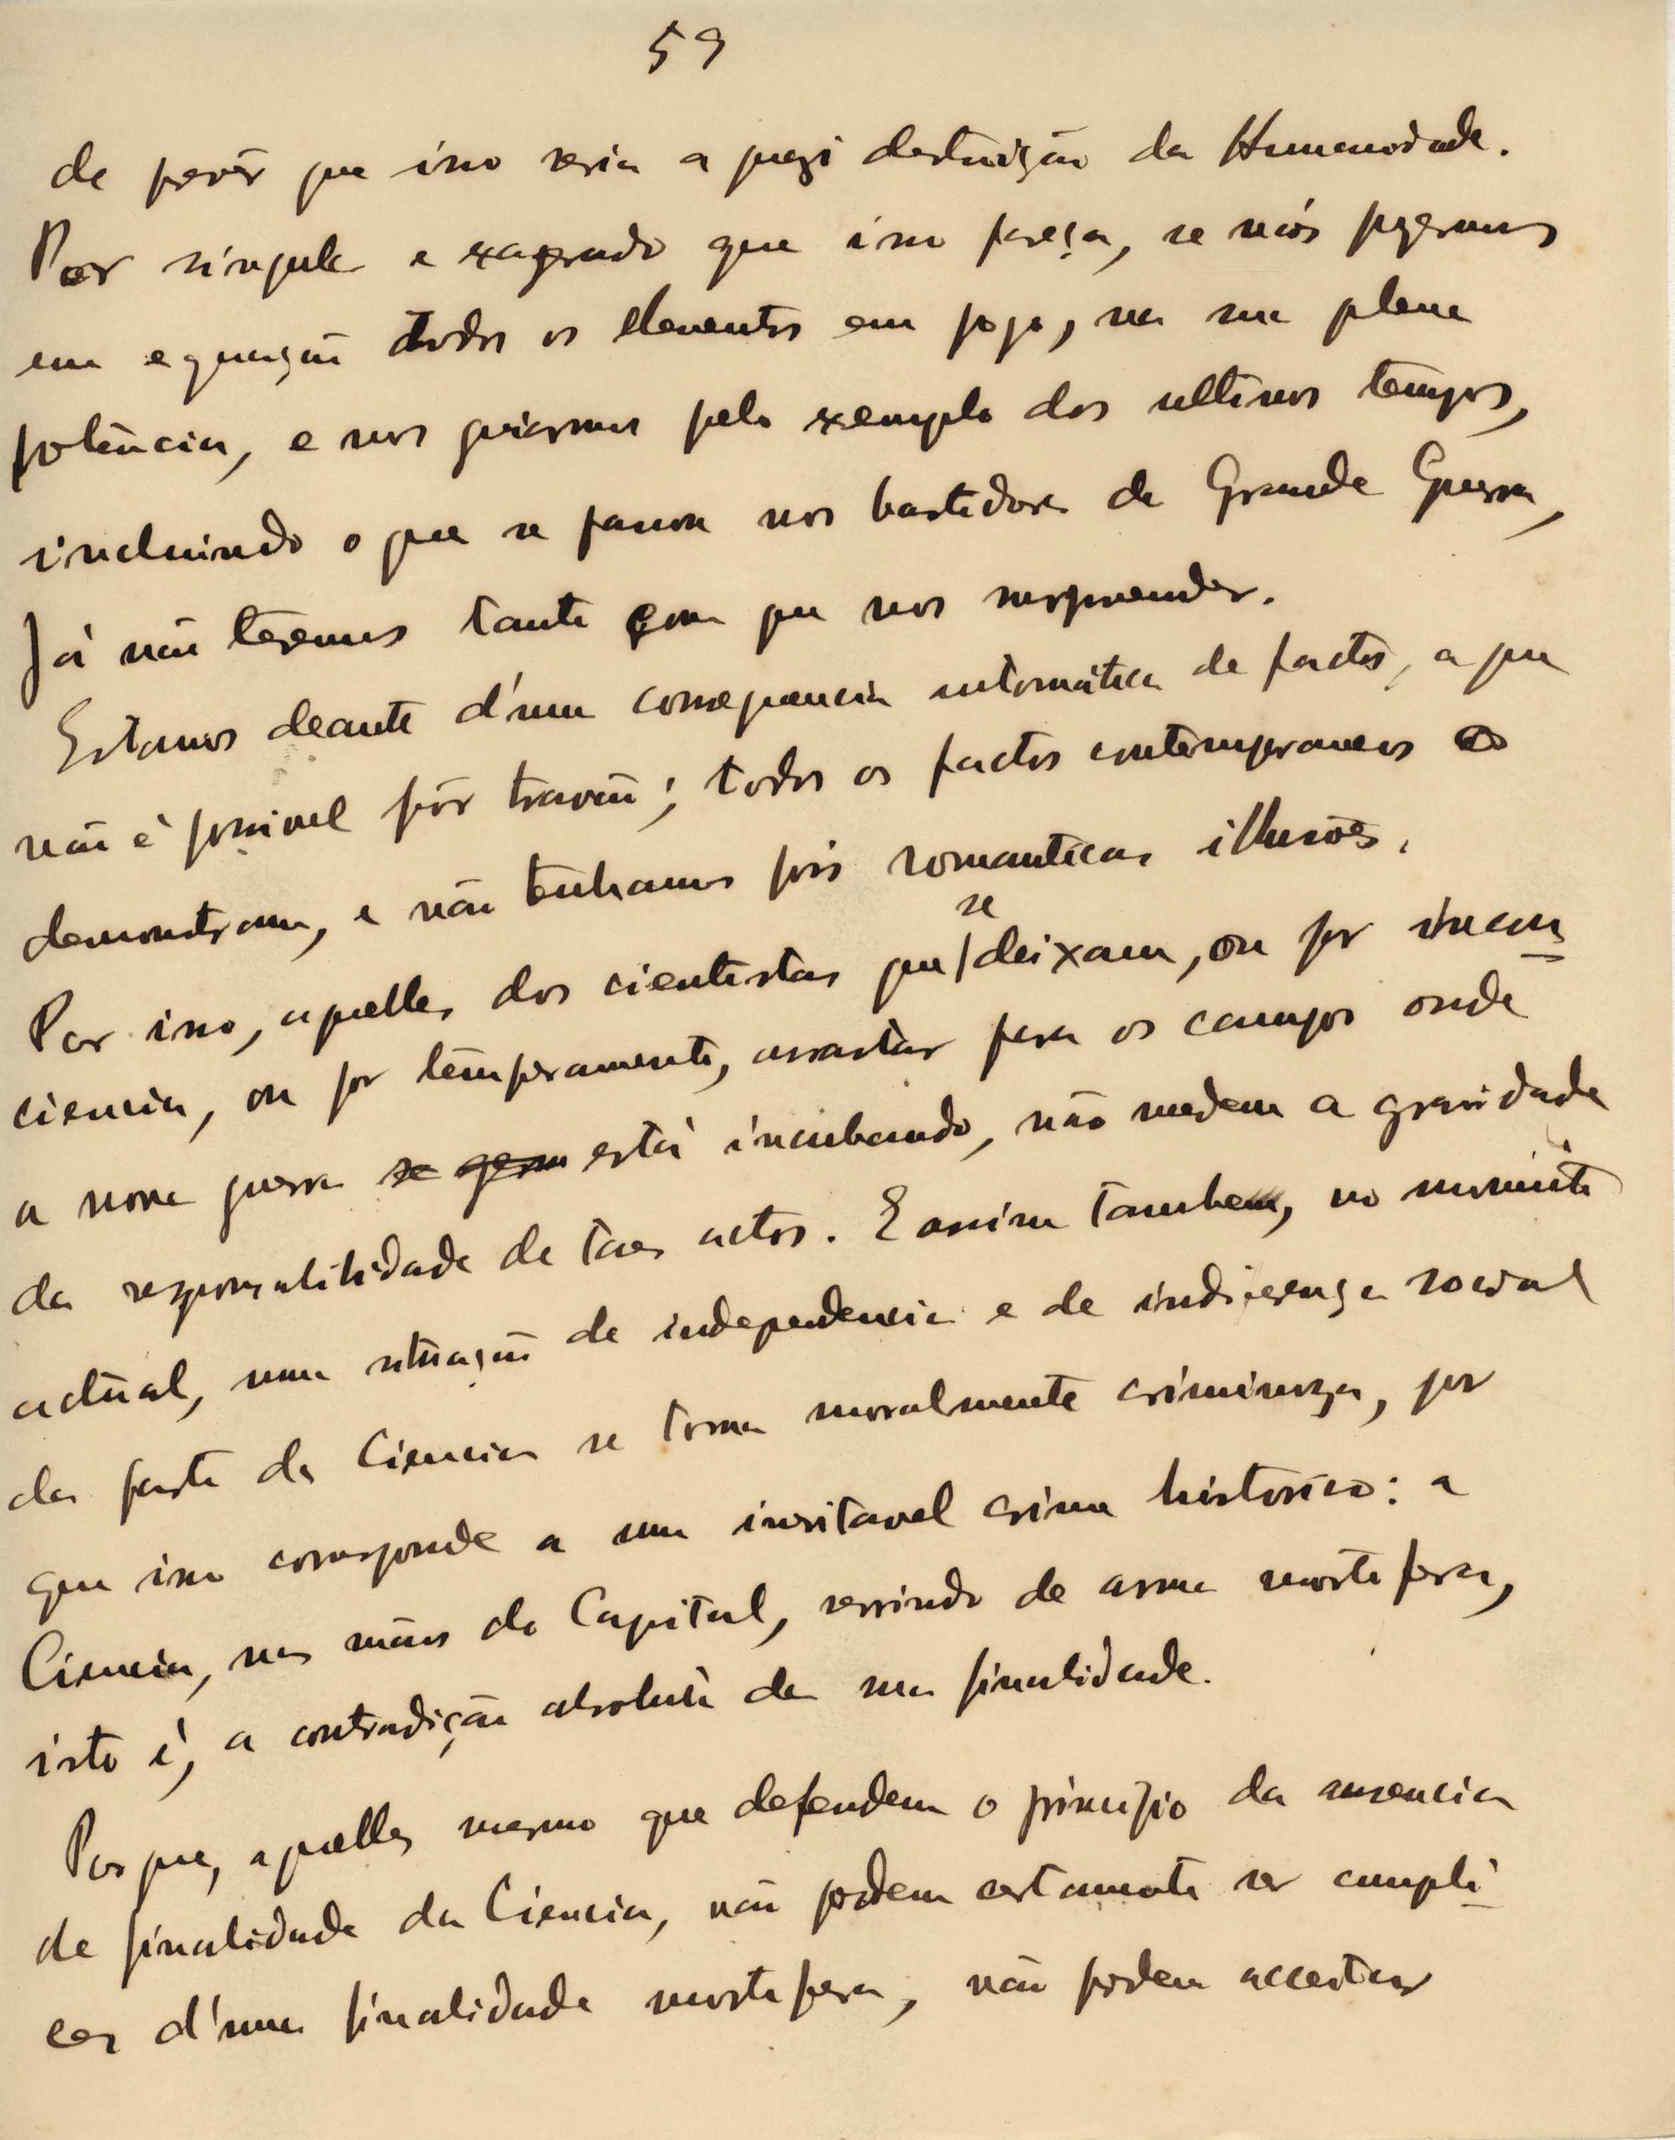 59
de prevêr que isso seria a quazi destruição da Humanidade.
Por singular e exagerado que isso pareça, se nós puzermos
em equação todos os elementos em jogo, na sua plena
potência, e nos guiarmos pelo exemplo dos ultimos tempos,
incluindo o que se passou nos bastidores da Grande Guerra,
já não teremos tanto com que nos surpreender.
Estamos deante d'uma consequencia automática de factos, a que
não é possivel pôr travão; todos os factos contemporaneos o
demonstram, e não tenhamos pois romanticas illusões.
Por isso, aquelles dos cientistas que se deixam, ou por incons
ciencia, ou por temperamento, arrastar para os campos onde
a nova guerra se gera está incubando, não medem a gravidade
da responsabilidade de taes actos. E assim tambem, no momento
actual, uma situação de independencia e de indiferença social
da parte da Ciencia se torna moralmente criminoza, por
que isso corresponde a um inevitavel crime historico: a
Ciencia, nas mãos do Capital, servindo de arma mortifera,
isto é, a contradição absoluta da sua finalidade.
Porque, aquelles mesmo que defendem o principio da ausencia
de finalidade da Ciencia, não podem certamente ser cumpli
ces d'uma finalidade mortifera, não podem acceitar